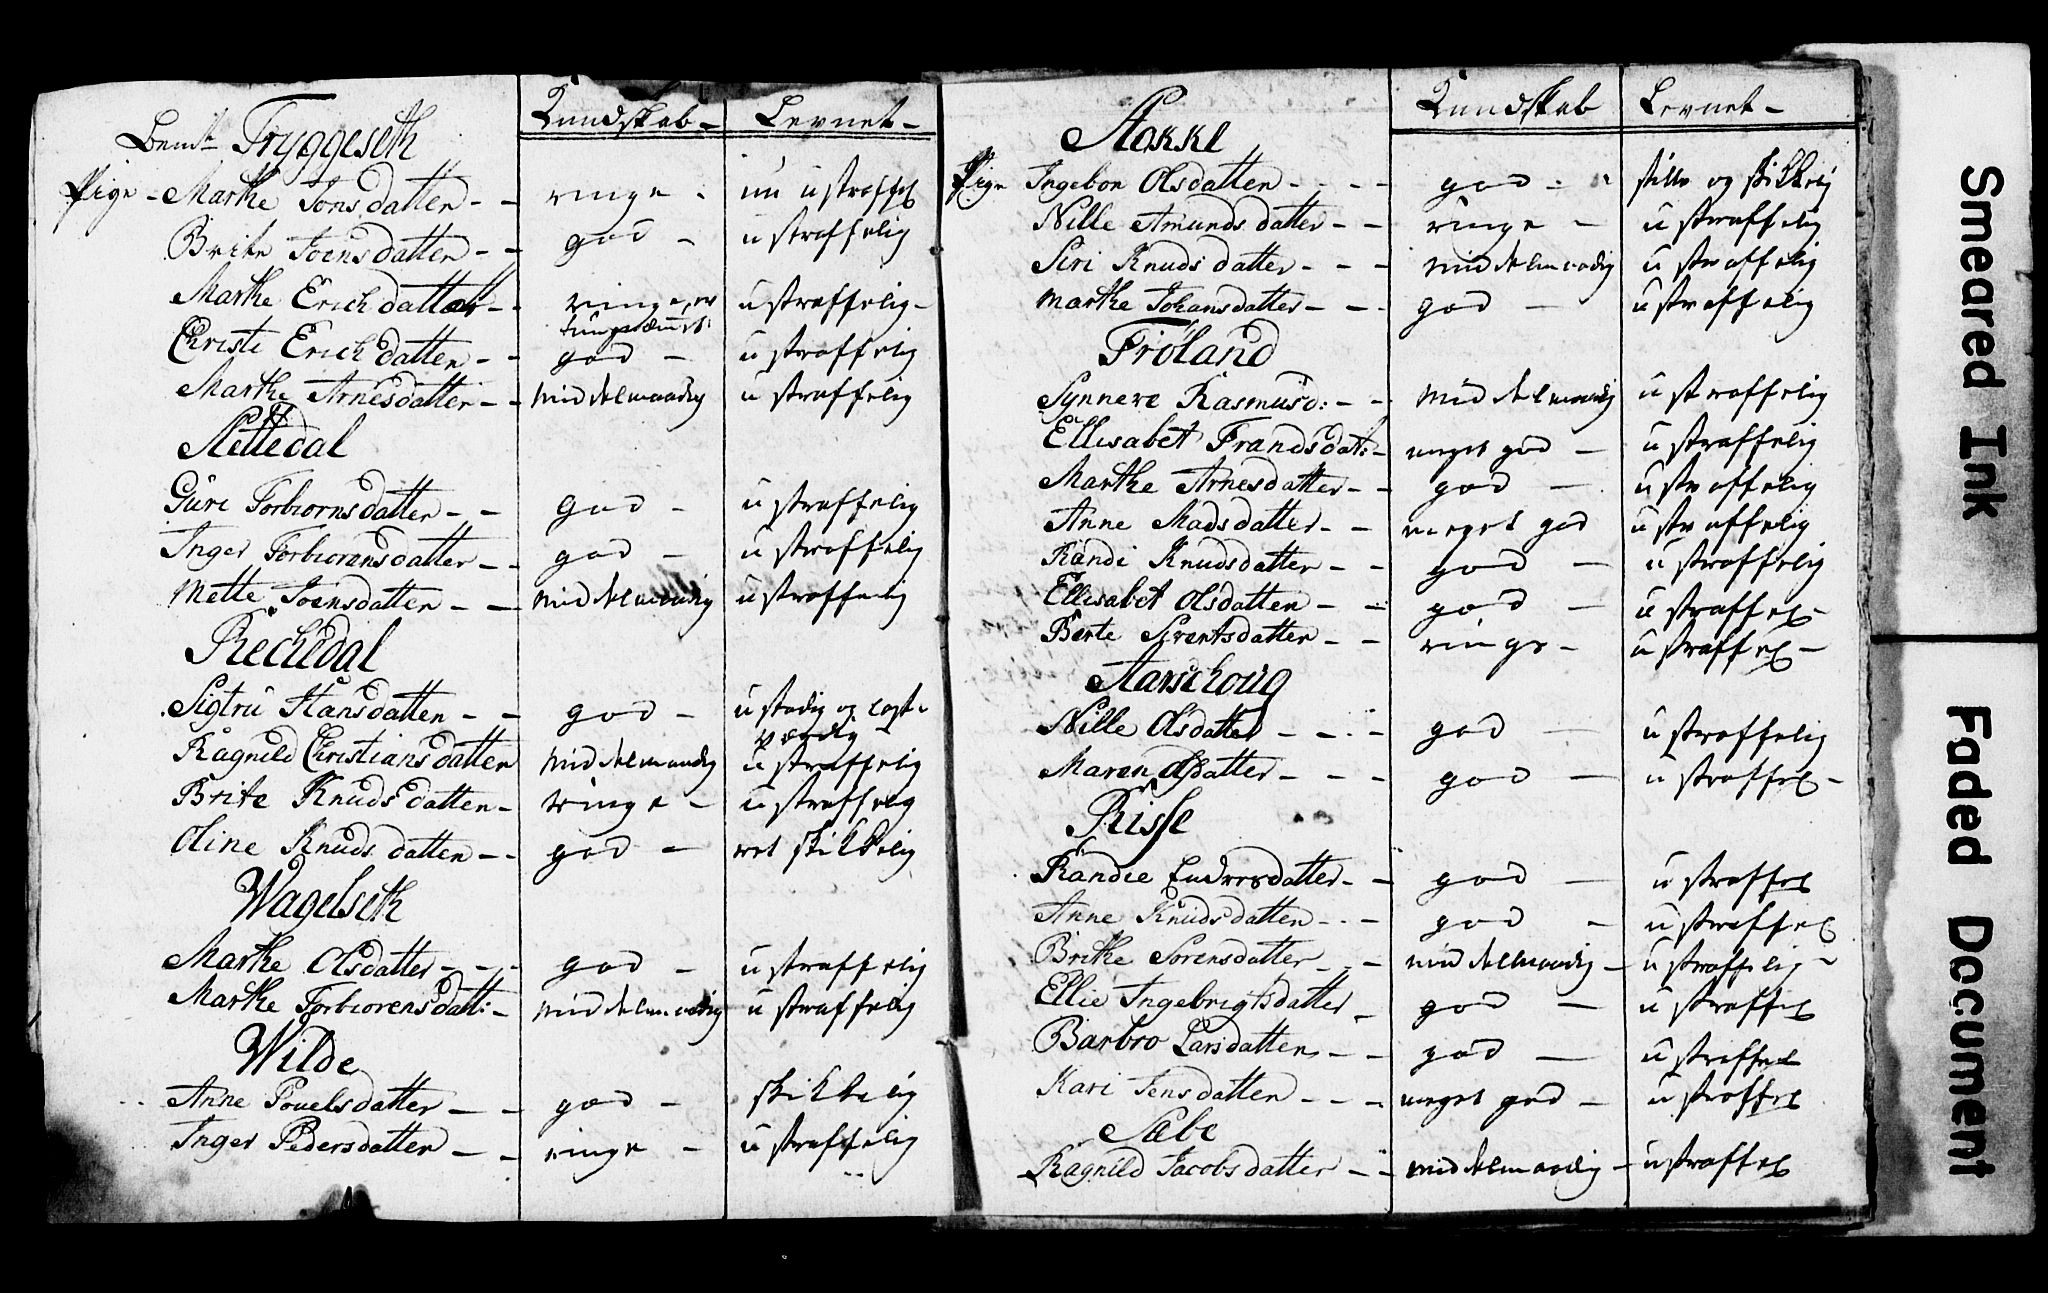 Kundskab - Levnet -
Bemt Tryggeseth
Pige - Marthe Jonsdatter - - ringe - nu ustraffel
Brite Joensdatter - - god - ustraffelig
Marthe Erichdatter - - ringe, er tungnæmet: ustraffelig -
Christi Erichdatter - - god - ustraffelig
Marthe Arnesdatter - - middelmaadig ustraffelig
Slettedal
Guri Torbiornsdatter - - god - ustraffelig
Inger Torbiorensdatter - - god - ustraffelig
Mette Joensdatter - - middelmaadig ustraffelig
Rechedal
Sigtru Hansdatter - - god - ustadig og
Ragnild Christiansdatter middelmaadig ustraffelig
Brite Knudsdatter - ringe - ustraffelig
Oline Knudsdatter - - god - ret skikkelig
Wagelseth
Marthe Olsdatter - - - god - ustraffelig
Marthe Torbiorensdatt: - middelmaadig ustraffelig
Wilde
Anne Pouelsdatter - - god - skikkelig
Inger Pedersdatter - - ringe - ustraffelig
Kundskab Levnet -
Stokke
Pige Ingebor Olsdatter - - - - god - stille og skikkelig
Nille Amundsdatter - - ringe - ustraffelig
Siri Knudsdatter - - - middelmaadig ustraffelig
Marthe Johansdatter - - - god - ustraffelig
Fröland
Synneve Rasmusd: - - middelmaadig ustraffelig
Ellisabet Frandsdat: - meget god - ustraffelig
Marthe Arnesdatter - - god - ustraffelig
Anne Madsdatter - - meget god ustraffelig
Randi Knudsdatter - - god - ustraffelig
Ellisabet Olsdatter - - god - ustraffel -
Berte Sivertsdatter - - ringe - ustraffel -
Aarschoug
Nille Olsdatter - - - god - ustraffelig
Maren Olsdatter - - - god - ustraffel -
Risse
Randie Endresdatter - - god - ustraffel
Anne Knudsdatter - - - god - ustraffel
Brithe Sorensdatter - - middelmaadig - ustraffelig -
Ellie Ingebrigtsdatter - god - ustraffel
Barbro Larsdatter - - god - ustraffel
Kari Jensdatter - - - meget god - ustraffel
Sæbe
Ragnild Jacobsdatter - - middelmaadig - ustraffel
Smeared Ink
Faded Document